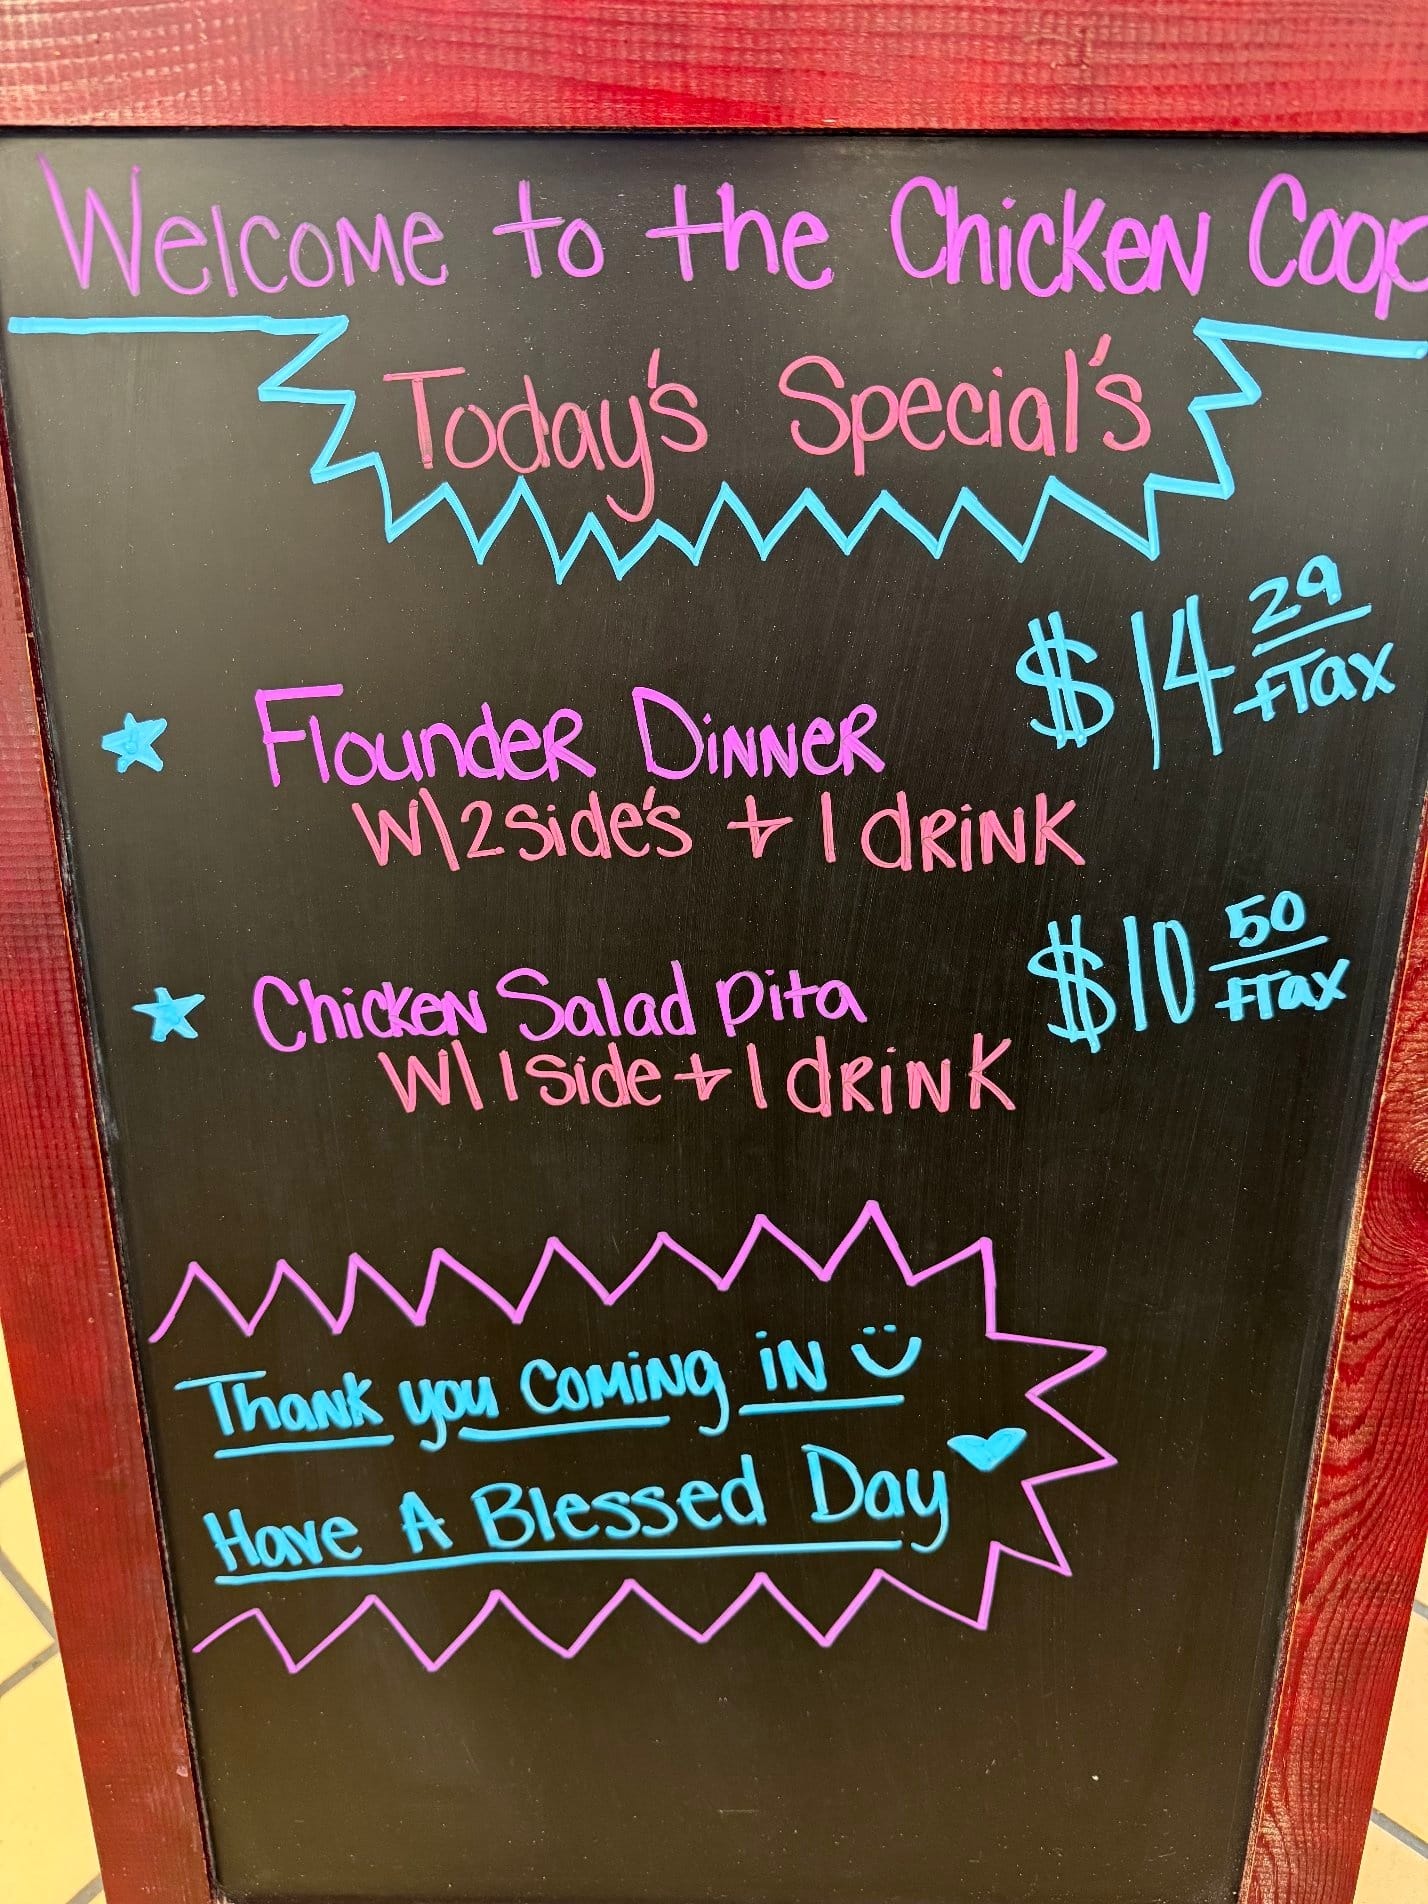 Welcome to the Chicken Coop
Today's Special's
Flounder Dinner $14 29 +Tax
W\2side's + 1 drink
Chicken Salad pita $10 50 +Tax
W\ 1 side + 1 drink
Thank you coming in
Have A Blessed Day